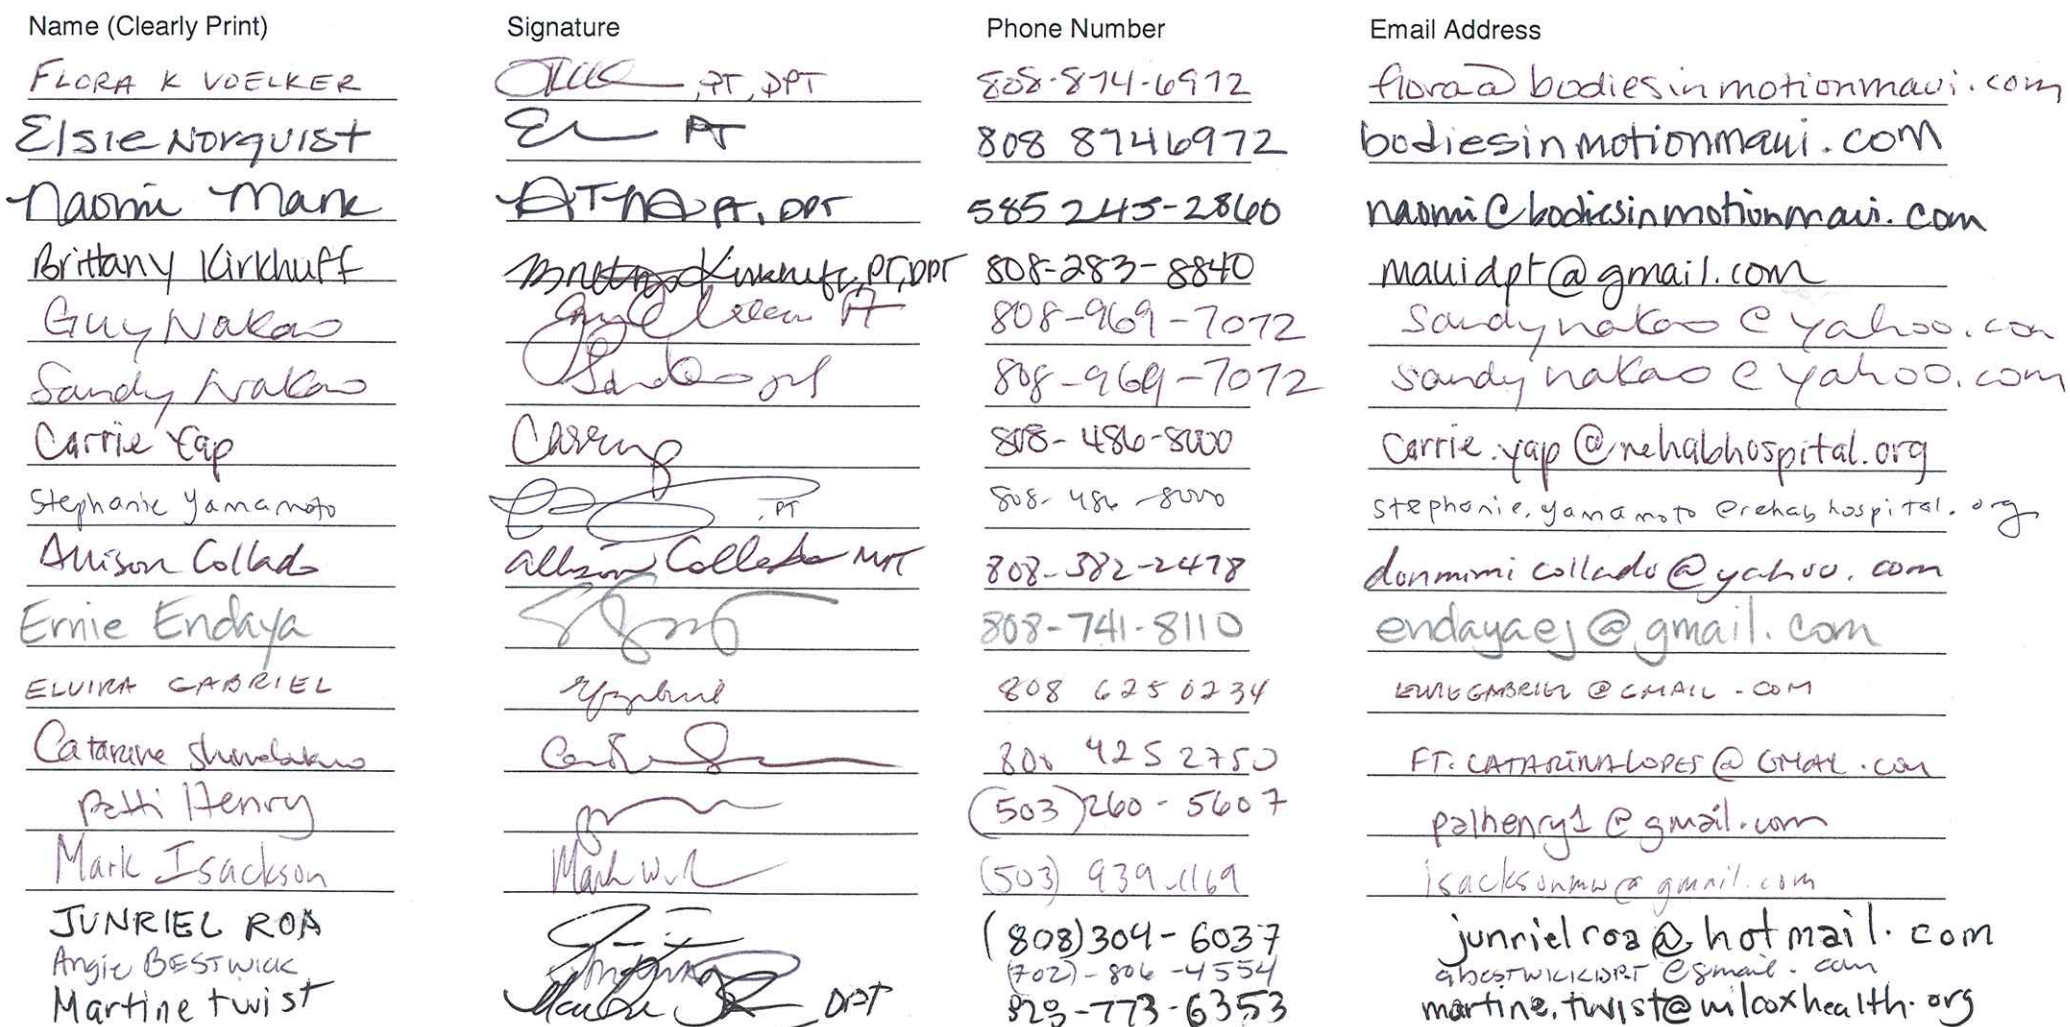 Name (Clearly Print) Signature Phone Number Email Address
FLORA K VOELKER , PT, DPT 808-874-6972 flora@bodiesinmotionmaui.com
Elsie Norquist PT 808 8746972 bodiesinmotionmaui.com
Naomi Mank PT, DPT 585 245-2860 naomi@bodiesinmotionmaui.com
Brittany Kirkhuff Brittany Kirkhuff, PT, DPT 808-283-8840 mauidpt@gmail.com
Guy Nakao PT 808-969-7072 sandynakao@yahoo.com
Sandy Nakao 808-969-7072 sandynakao@yahoo.com
Carrie Yap 808-486-8000 carrie.yap@rehabhospital.org
Stephanie Yamamoto , PT 808-486-8000 stephanie.yamamoto@rehabhospital.org
Allison Collado Allison Collado MPT 808-382-2478 donmimicollado@yahoo.com
Ernie Endaya 808-741-8110 endayaej@gmail.com
ELVIRA GABRIEL 808 625 0234 @GMAIL.COM
808 425 2750 FT.CATARINALOPES@GMAIL.com
Patti Henry (503)260-5607 palhenry1@gmail.com
Mark Isackson (503) 939-1169 isacksonmw@gmail.com
JUNRIEL ROA (808)304-6037 junrielroa@hotmail.com
Angie BESTWICK (702)-806-4554 abestwickDPT@gmail.com
Martine twist DPT 828-773-6353 martine.twist@wilcoxhealth.org